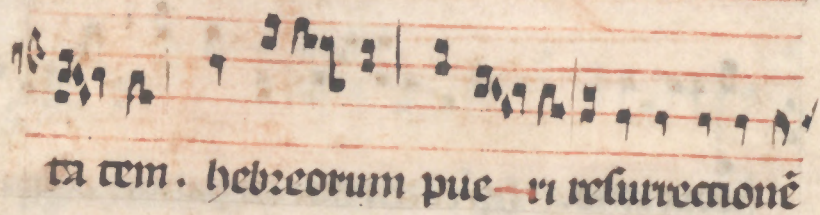 ta tem. hebreorum pue-ri resurrectionē